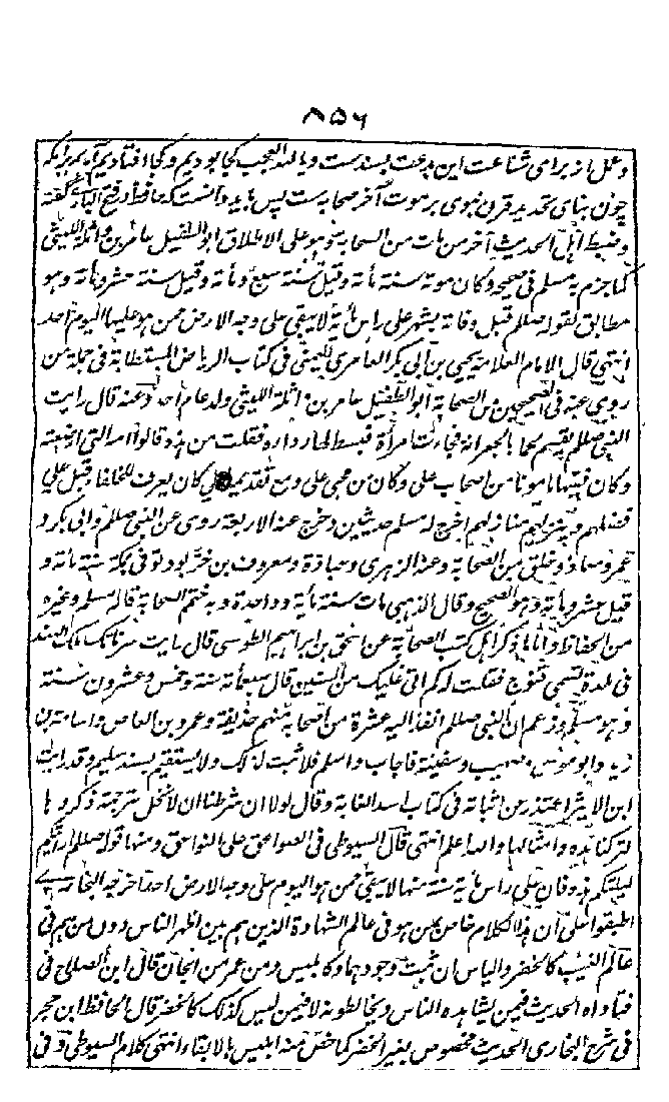 ۸۵۶
وعمل از برای شناعت این بدعت بسندست ویا لله العجب کجا بودیم وکجا افتادیم
چون بنای تحدید قرن نبوی بر موت آخر صحابه ست پس باید دانست که حافظ در فتح الباری گفته
وضبط اهل الحدیث آخر من مات من الصحابة وهو علی الاطلاق ابو الطفیل عامر بن واثلة اللیثی
کما جزم به مسلم فی صحیحه وکان موته سنة مائة وقیل سنة سبع ومائة وقیل سنة عشر ومائة وهو
مطابق لقوله صللم قبل وفاته بشهر علی راس مائة لا یبقی علی وجه الارض ممن هو علیها الیوم احد
انتهی قال الامام العلامة یحیی بن ابی بکر العامری الیمنی فی کتاب الریاض المستطابة فی جملة من
روی عنه فی الصحیحین من الصحابة ابو الطفیل عامر بن واثلة اللیثی ولد عام احد وعنه قال رایت
النبی صللم یقسم لحما بالجعرانة فجاءت امرأة فبسط لها رداره فقلت من هذه قالوا امه التی ارضعته
وکان فقیها مامونا من اصحاب علی وکان من محبی علی ومع تقدیمه علی کان یعرف للخلفا قبل علی
فضلهم وینزلهم منازلهم اخرج له مسلم حدیثین وخرج عنه الاربعة روی عن النبی صللم وابی بکر و
عمر ومعاذ وخلق من الصحابة وعنه الزهری وقتادة ومعروف بن خربوذ توفی بمکة سنة مائة و
قیل عشر ومائة وهو الصحیح وقال الذهبی مات سنة مایة وواحدة وبه ختم الصحابة قاله مسلم وغیره
من الحفاظ واما ما ذکر اهل کتب الصحابة عن اسحق بن ابراهیم الطوسی قال رایت سرباتک ملک الهند
فی بلدة تسمی قنوج فقلت له کم اتی علیک من السنین قال سبعمأة سنة وخمس وعشرون سنة
وهو مسلم وزعم ان النبی صللم انفذ الیه عشرة من اصحابه منهم حذیفة وعمرو بن العاص واسامة بن
زید وابو موسی وصهیب وسفینة فاجاب واسلم فلا ثبت لذلک ولا یستقیم بسند سلیم وقد رایت
ابن الاثیر اعتذر عن اثباته فی کتاب اسد الغابة وقال لولا ان شرطنا ان لا نخل بترجمة ذکروها
لترکنا هذه وامثالها والله اعلم انتهی قال السیوطی فی الصواعق علی النواعق ومنها قوله صللم ارأیتکم
لیلتکم هذه فان علی راس مایة سنة منها لا یبقی ممن هو الیوم علی وجه الارض احد اخرجه البخاری
اطبقوا علی ان هذا الکلام خاص بمن هو فی عالم الشهادة الذین هم بین اظهر الناس دون من هم فی
عالم الغیب کالخضر والیاس ان ثبت وجودهما وکابلیس ومن عمر من الجان قال ابن الصلاح فی
فتاواه الحدیث فیمن یشاهده الناس ویخالطونه لا فیمن لیس کذلک کالخضر قال الحافظ ابن حجر
فی شرح البخاری الحدیث مخصوص بغیر الخضر کما خص منه ابلیس بالابقاء انتهی کلام السیوطی وفی